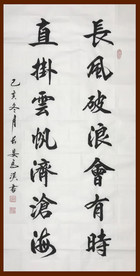 長風破浪會有時
直掛雲帆濟滄海
己亥冬月